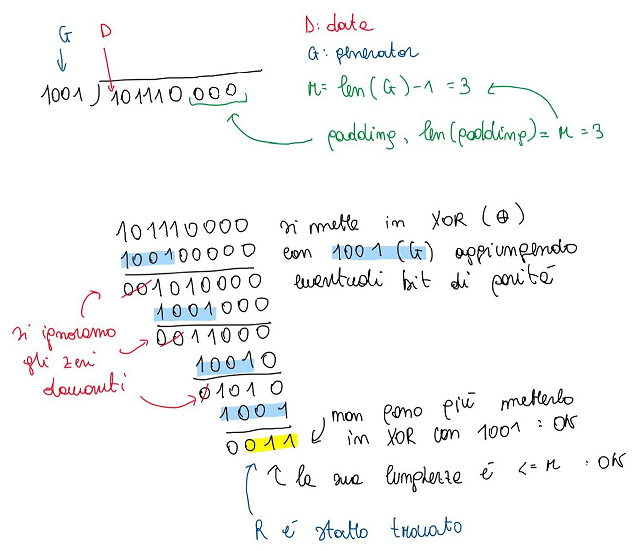 G D
D: data
G: generator
r= len(G)-1 = 3
1001 ) 101110 000
padding, len(padding)= r = 3
101110000 si mette in XOR (⊕)
100100000 con 1001 (G) aggiungendo
001010000 eventuali bit di parità
1001000
0011000
si ignorano
gli zeri
davanti
10010
01010
1001
0011
non posso più metterlo
in XOR con 1001 : OK
la sua lunghezza è <= r : OK
R è stato trovato